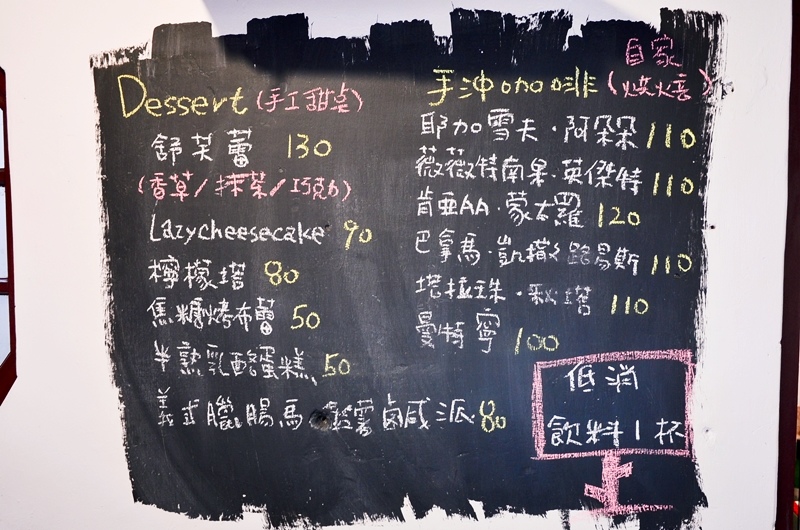 Dessert (手工甜点)
舒芙蕾 130
(香草/抹茶/巧克力)
Lazycheesecake 90
檸檬塔 80
焦糖烤布蕾 50
半熟乳酪蛋糕 50
義式臘腸馬鈴薯鹹派 80
手沖咖啡 (自家烘焙)
耶加雪夫·阿朵朵 110
薇薇特南果·英傑特 110
肯亞AA·蒙太羅 120
巴拿馬·凱撒路易斯 110
塔拉珠·秋塔 110
曼特寧 100
低消
飲料1杯